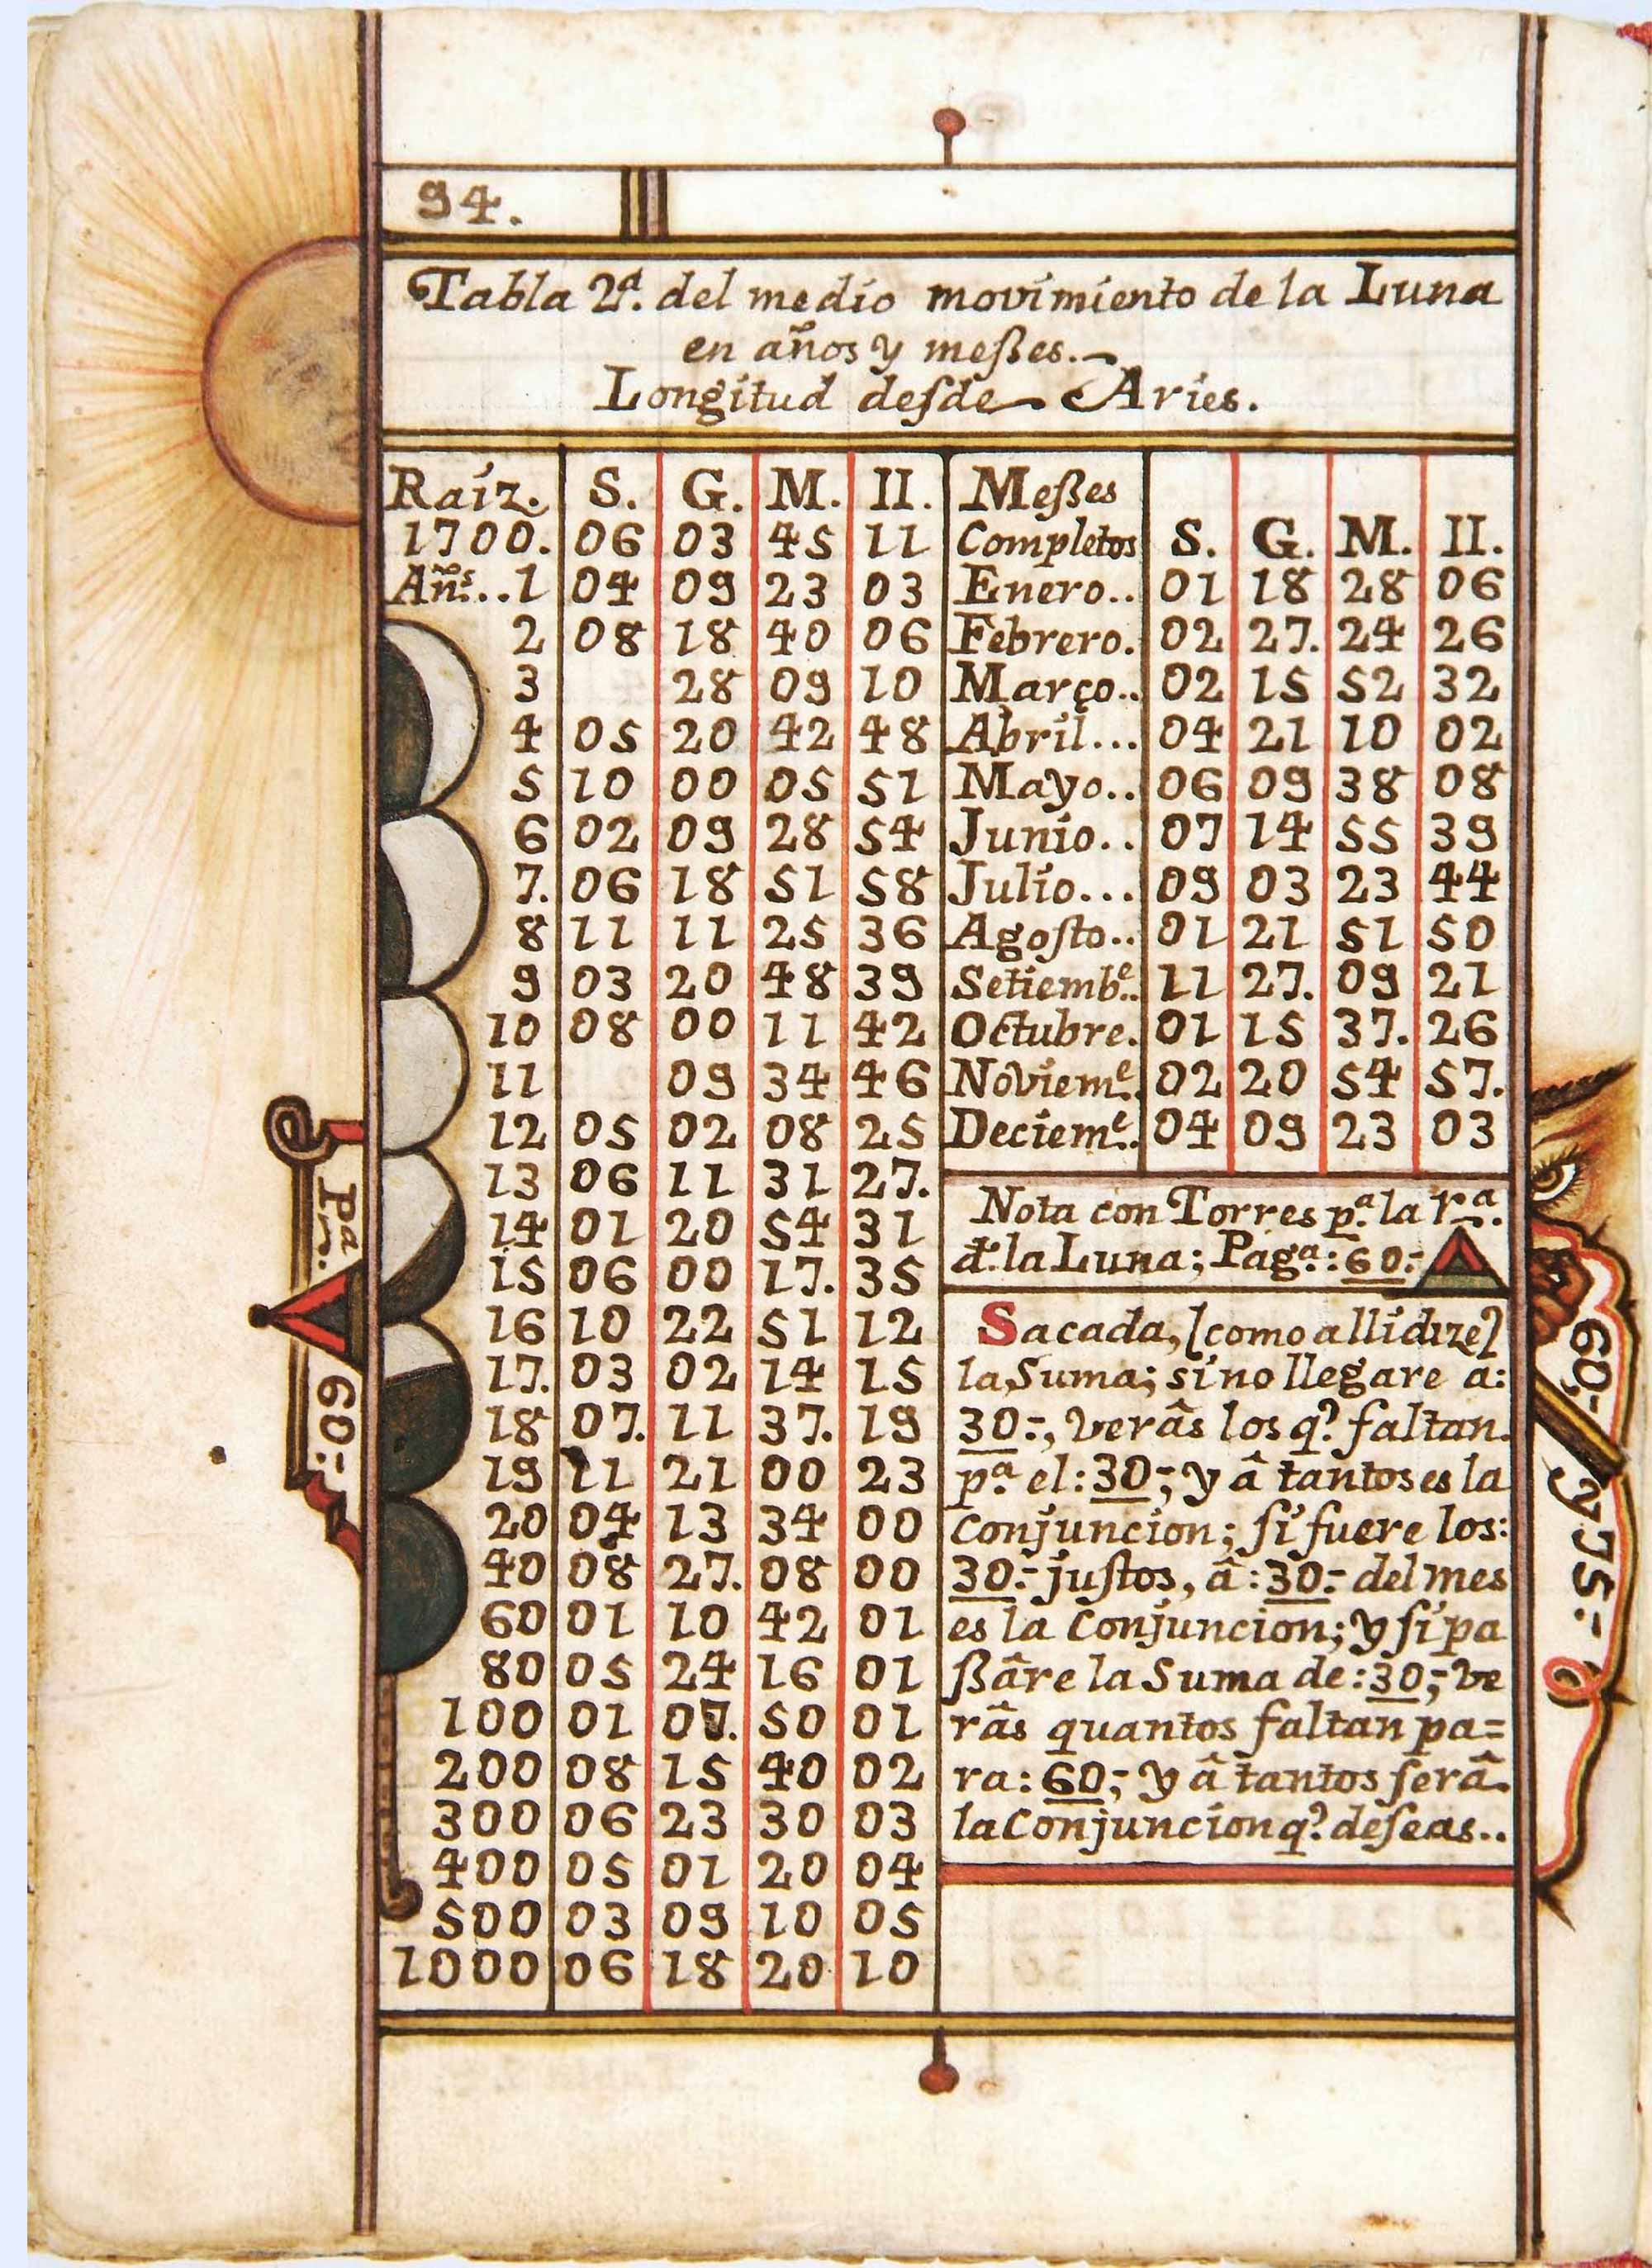 94.
Tabla 2ª. del medio movimiento de la Luna
en años y meßes.
Longitud deſde Aries.
Raíz. S. G. M. II.
1700. 06 03 45 11
Añs..1 04 09 23 03
2 08 18 40 06
3 28 09 10
4 05 20 42 48
5 10 00 05 51
6 02 09 28 54
7. 06 18 51 58
8 11 11 25 36
9 03 20 48 39
10 08 00 11 42
11 09 34 46
12 05 02 08 25
13 06 11 31 27.
14 01 20 54 31
15 06 00 17. 35
16 10 22 51 12
17. 03 02 14 15
18 07. 11 37. 19
19 11 21 00 23
20 04 13 34 00
40 08 27. 08 00
60 01 10 42 01
80 05 24 16 01
100 01 07. 50 01
200 08 15 40 02
300 06 23 30 03
400 05 01 20 04
500 03 09 10 05
1000 06 18 20 10
Meßes
Completos S. G. M. II.
Enero.. 01 18 28 06
Febrero. 02 27. 24 26
Março.. 02 15 52 32
Abril... 04 21 10 02
Mayo.. 06 09 38 08
Junio.. 07 14 55 39
Julio... 09 03 23 44
Agoſto.. 01 21 51 50
Setiembᵉ.. 11 27. 09 21
Octubre. 01 15 37. 26
Noviemᵉ. 02 20 54 57.
Deciemᵉ. 04 09 23 03
Nota con Torres pª. la rª.
d. la Luna; Pagª.: 60.-
Sacada, [como alli dize]
la Suma; si no llegare a:
30.-, verâs los q? faltan.
pª. el: 30.-; y â tantos es la
Conjuncion; ſi fuere los:
30.- juſtos, â: 30.- del mes
es la Conjuncion; y ſi pa
ßâre la Suma de: 30.-; ve
râs quantos faltan pa=
ra: 60.-; y â tantos ſerâ
la Conjuncion q? deſeas..
Pª
60.-
60.- y 75.-